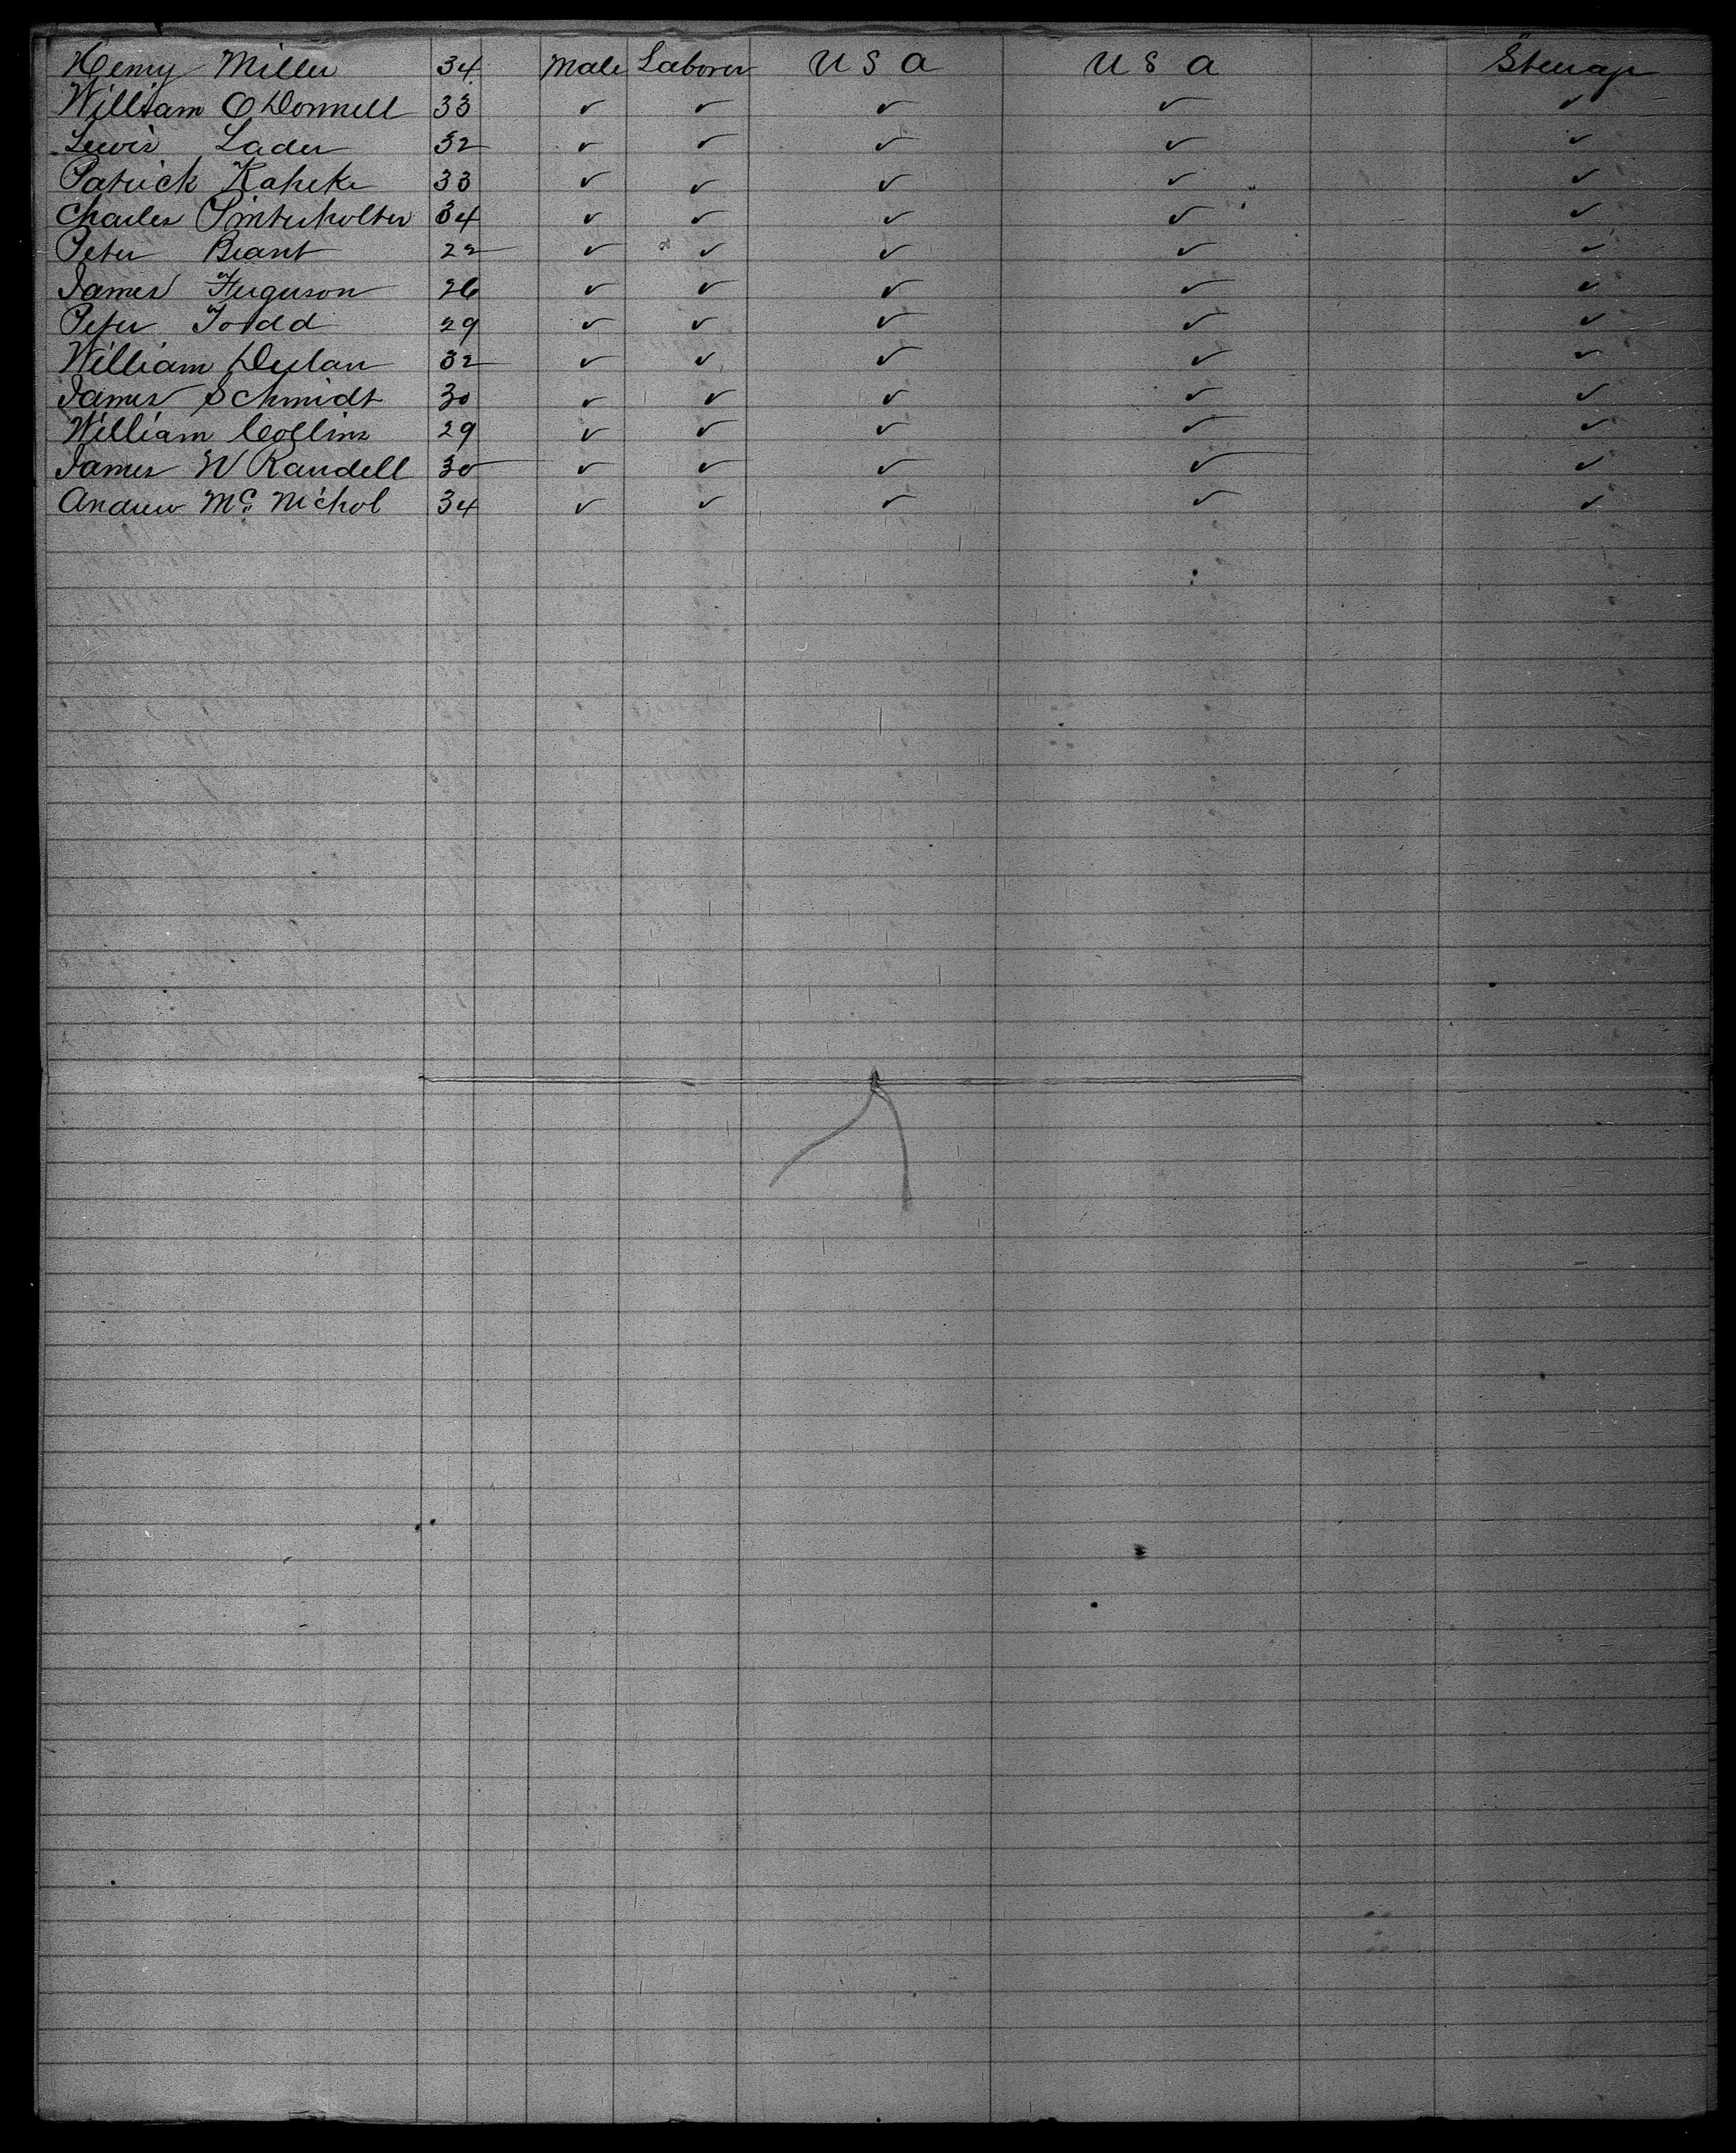 Henry Miller 34 Male Laborer U S A U S A Steerage
William O Donnell 33 ✓ ✓ ✓ ✓ ✓
Lewis Lader 32 ✓ ✓ ✓ ✓ ✓
Patrick 33 ✓ ✓ ✓ ✓ ✓
Charles 34 ✓ ✓ ✓ ✓ ✓
Peter Beant 22 ✓ ✓ ✓ ✓ ✓
James Ferguson 26 ✓ ✓ ✓ ✓ ✓
Peter Todd 29 ✓ ✓ ✓ ✓ ✓
William 32 ✓ ✓ ✓ ✓ ✓
James Schmidt 30 ✓ ✓ ✓ ✓ ✓
William Collins 29 ✓ ✓ ✓ ✓ ✓
James W Randell 30 ✓ ✓ ✓ ✓ ✓
Andrew Mc Nichol 34 ✓ ✓ ✓ ✓ ✓